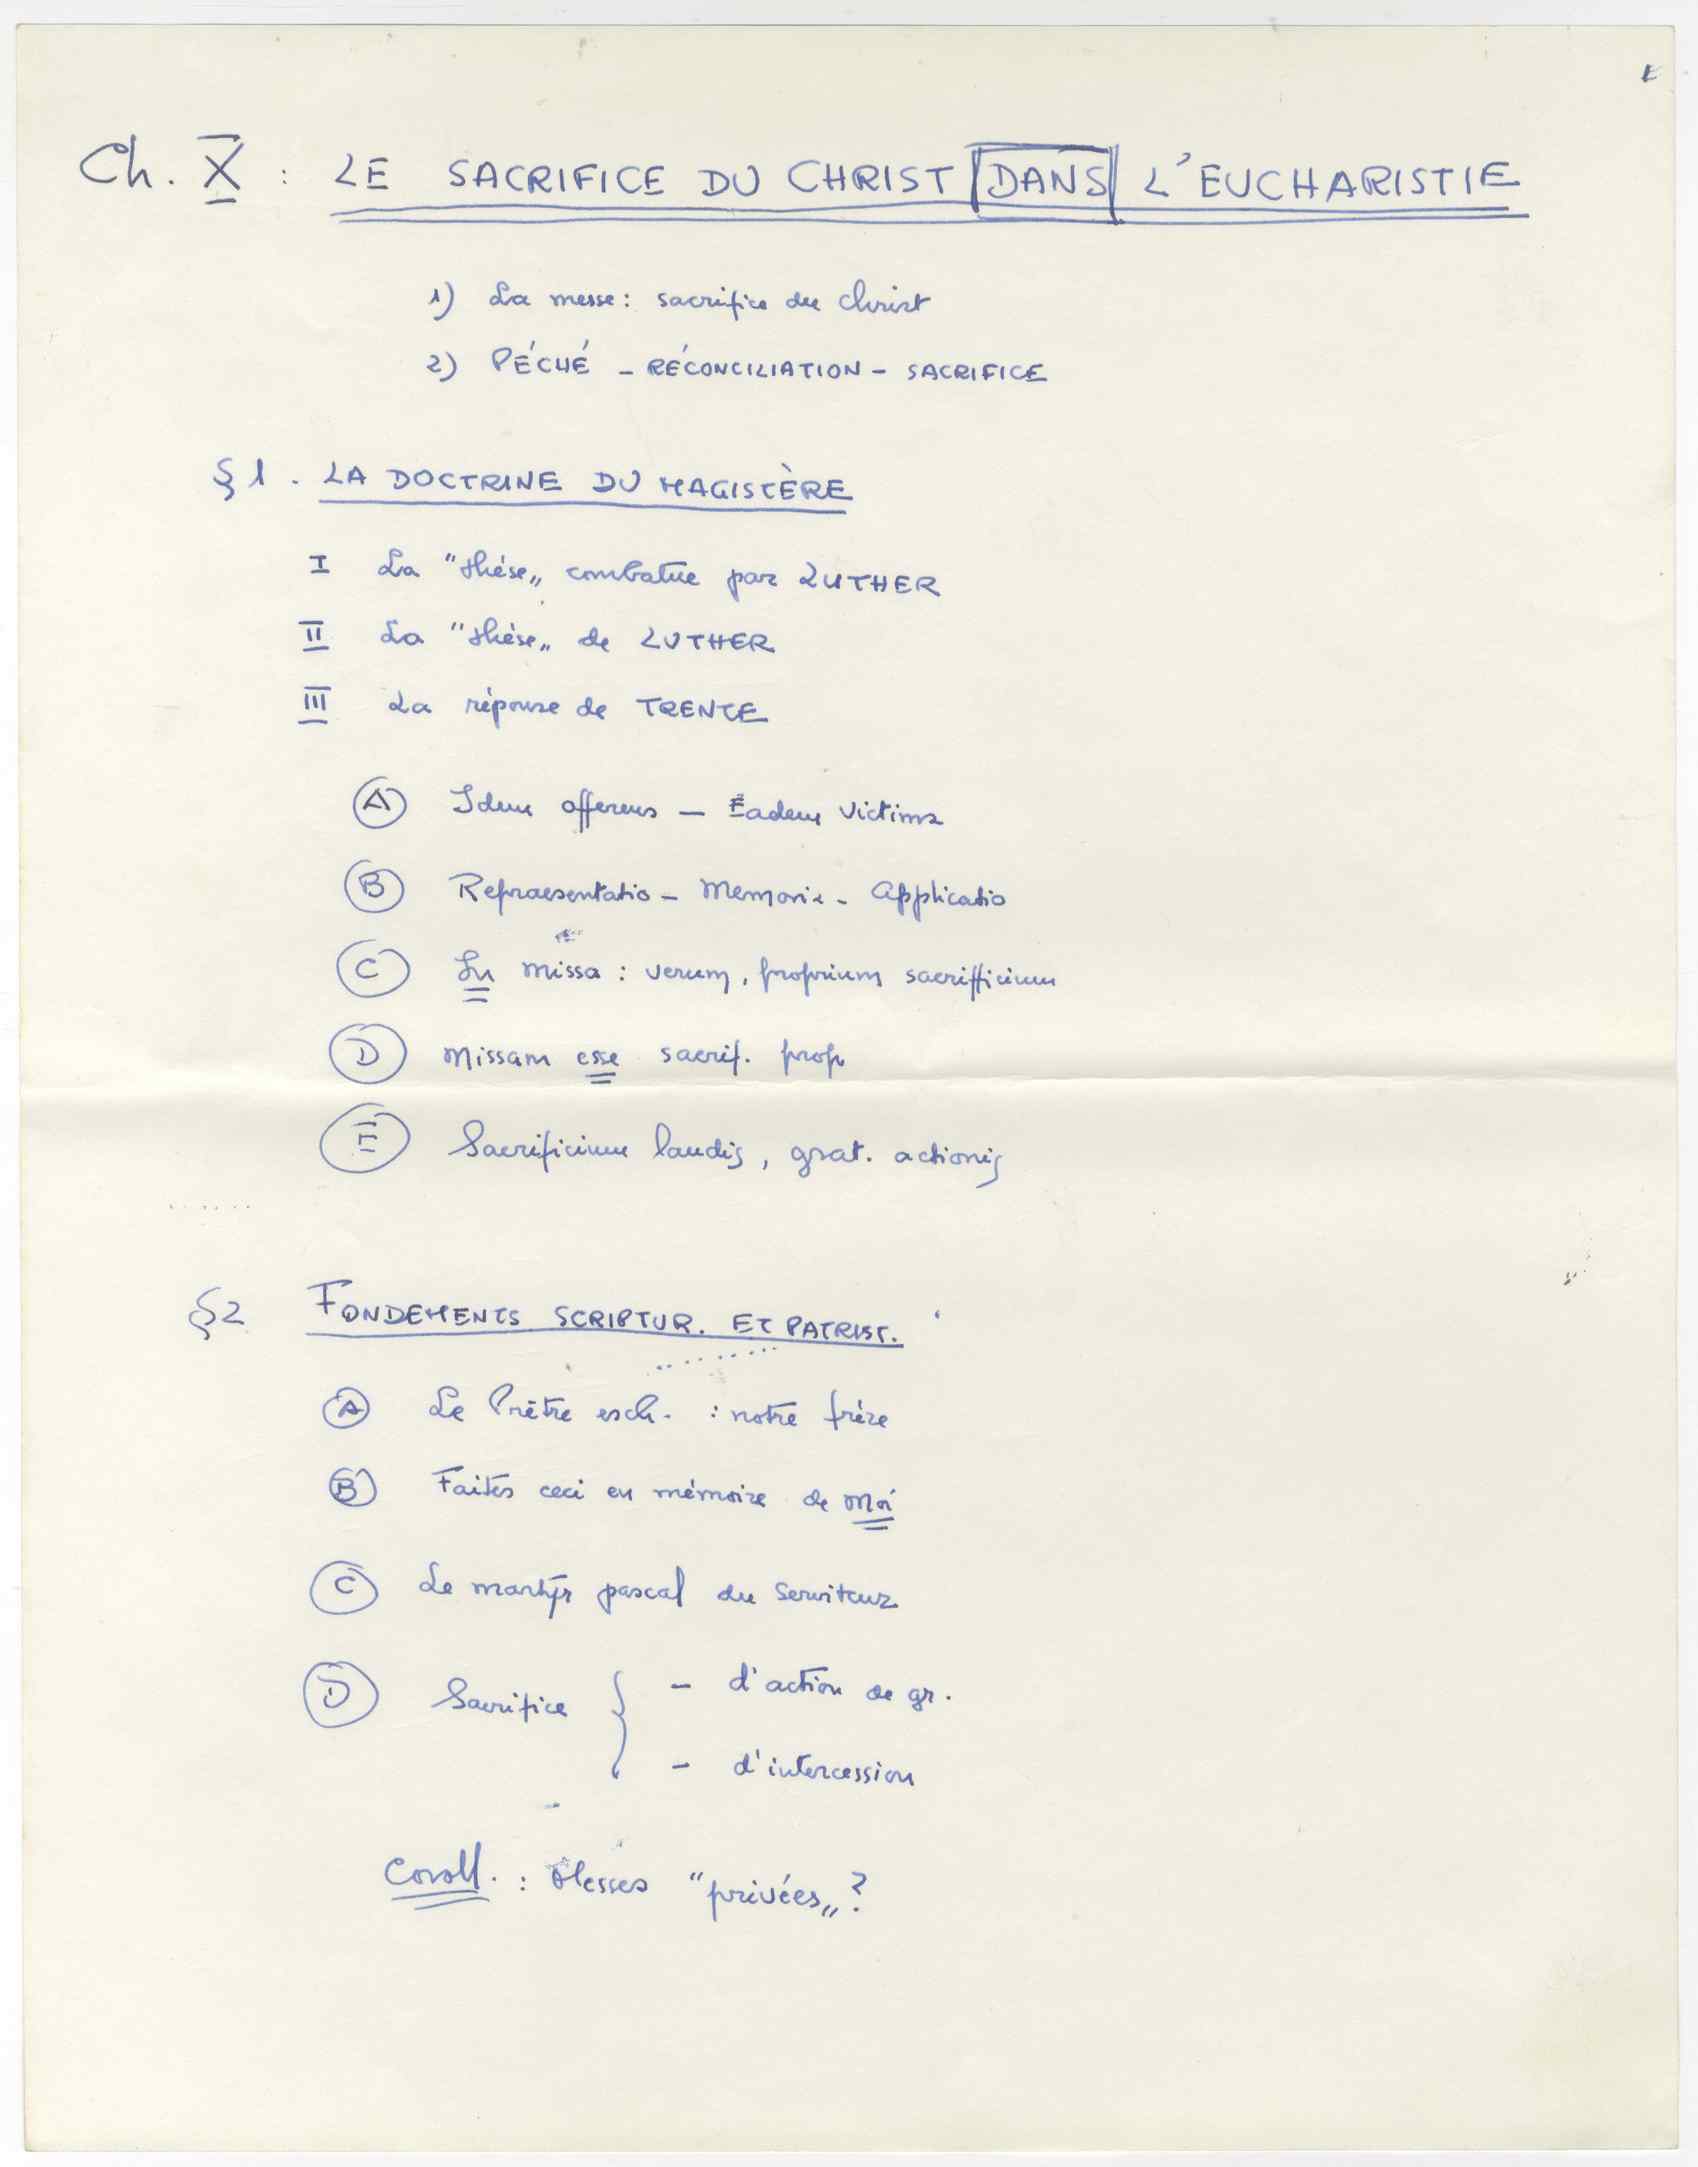 Ch. X : LE SACRIFICE DU CHRIST DANS L'EUCHARISTIE
1) La messe : sacrifice du Christ
2) PÉCHÉ - RÉCONCILIATION - SACRIFICE
§ 1. LA DOCTRINE DU MAGISTÈRE
I La "thèse„ combatue par LUTHER
II La "thèse„ de LUTHER
III La réponse de TRENTE
A Idem offerens - Eadem victima
B Repraesentatio - Memoria - Applicatio
C In missa : verum, proprium sacrifficium
D Missam esse sacrif. prop
E Sacrificium laudis, grat. actionis
§2 FONDEMENTS SCRIPTUR. ET PATRIST.
A Le Prêtre esch. : notre frère
B Faites ceci en mémoire de Moi
C Le martyr pascal du Serviteur
D Sacrifice { - d'action de gr.
- d'intercession
Coroll. : Messes "privées„ ?